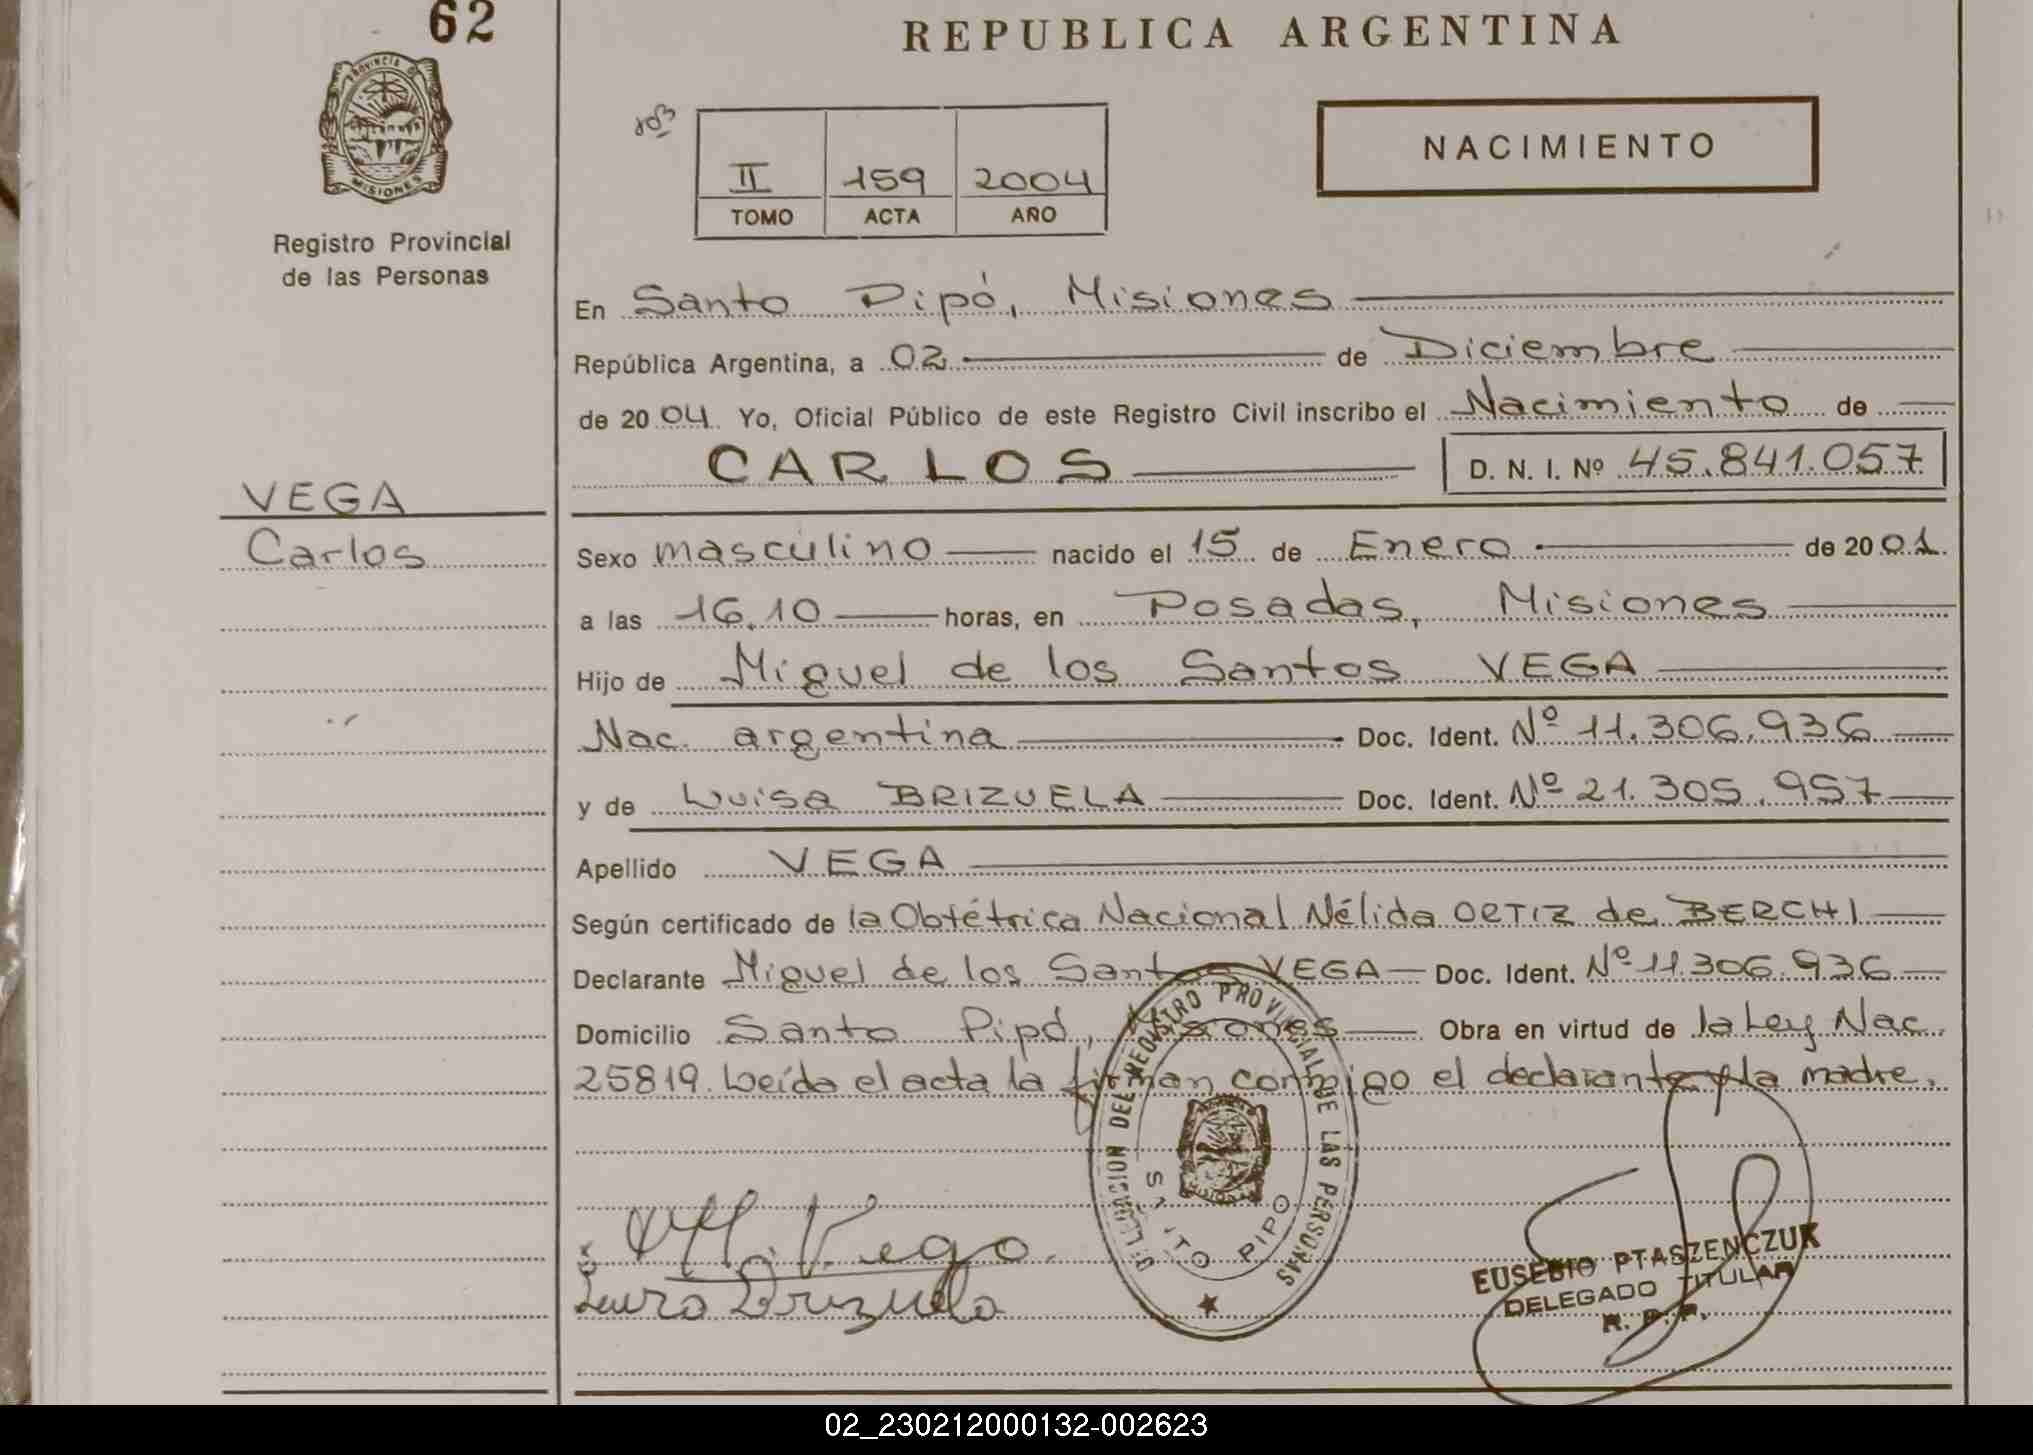 62
REPUBLICA ARGENTINA
PROVINCIA DE
MISIONES
Registro Provincial
de las Personas
103
II 159 2004
TOMO ACTA AÑO
NACIMIENTO
En Santo Pipó, Misiones
República Argentina, a 02 de Diciembre
de 2004 Yo, Oficial Público de este Registro Civil inscribo el Nacimiento de
CARLOS D. N. I. Nº 45.841.057
VEGA
Carlos
Sexo masculino nacido el 15 de Enero de 2001.
a las 16.10 horas, en Posadas, Misiones
Hijo de Miguel de los Santos VEGA
Nac. argentina Doc. Ident. Nº 11.306.936
y de Luisa BRIZUELA Doc. Ident. Nº 21.305.957
Apellido VEGA
Según certificado de la Obtétrica Nacional Nélida ORTIZ de BERCHI
Declarante Miguel de los Santos VEGA Doc. Ident. Nº 11.306.936
Domicilio Santo Pipó, Misiones Obra en virtud de la Ley Nac.
25819. Leída el acta la firman conmigo el declarante y la madre.
DELEGACION DEL REGISTRO PROVINCIAL DE LAS PERSONAS
SANTO PIPO
MISIONES
M. Vega.
Brizuela
EUSEBIO PTASZENCZUK
DELEGADO TITULAR
R. P. P.
02_230212000132-002623